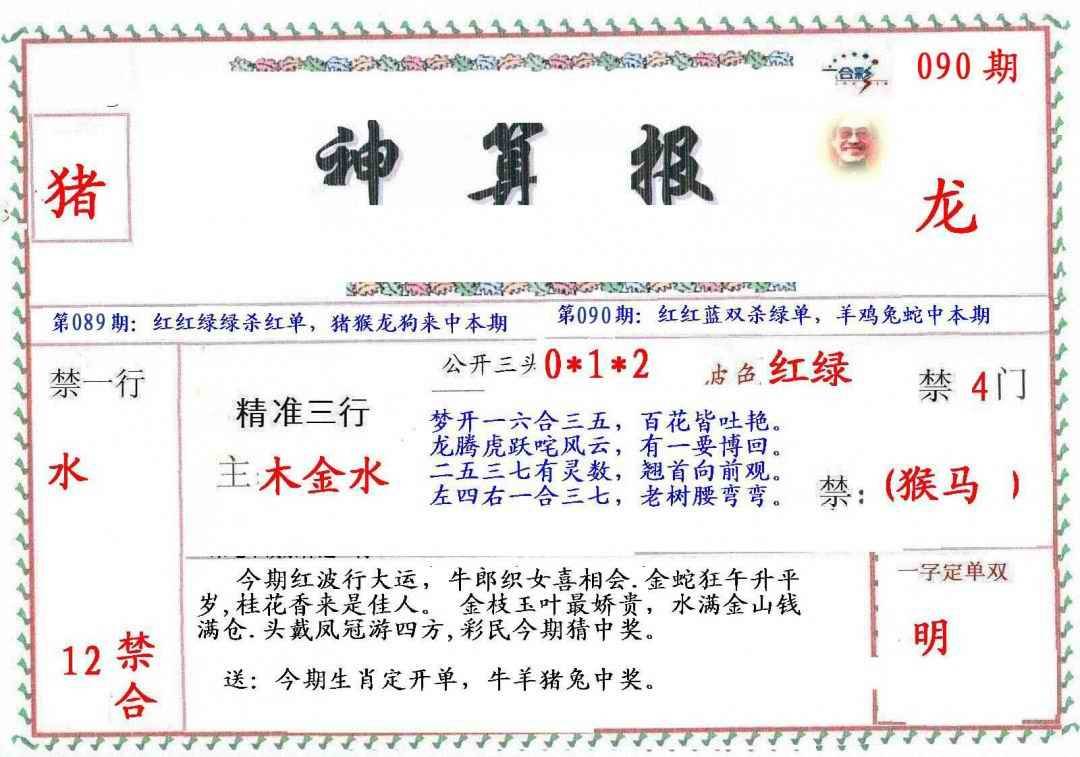 合彩
090 期
神算报
猪
龙
第089期：红红绿绿杀红单，猪猴龙狗来中本期
第090期：红红蓝双杀绿单，羊鸡兔蛇中本期
禁一行
水
12 禁合
精准三行
主:木金水
公开三头0*1*2
波色 红绿
梦开一六合三五，百花皆吐艳。
龙腾虎跃咤风云，有一要博回。
二五三七有灵数，翘首向前观。
左四右一合三七，老树腰弯弯。
禁 4门
禁:(猴马 )
今期红波行大运，牛郎织女喜相会.金蛇狂午升平
岁,桂花香来是佳人。 金枝玉叶最娇贵，水满金山钱
满仓.头戴凤冠游四方,彩民今期猜中奖。
送：今期生肖定开单，牛羊猪兔中奖。
一字定单双
明